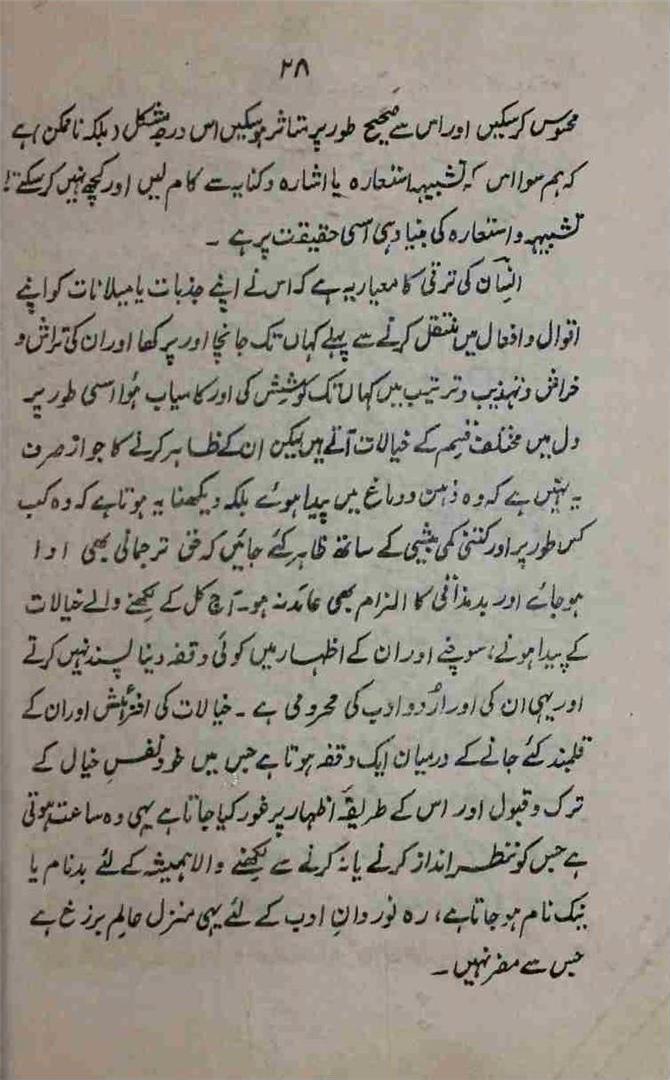 ۲۸
محسوس کر سکیں اور اس سے صحیح طور پر متاثر ہو سکیں اس درجہ مشکل (بلکہ ناممکن) ہے
کہ ہم سوا اس کہ تشبیہہ استعارہ یا اشارہ و کنایہ سے کام لیں اور کچھ نہیں کر سکتے!
تشبیہہ و استعارہ کی بنیاد ہی اسی حقیقت پر ہے ۔
انسان کی ترقی کا معیار یہ ہے کہ اس نے اپنے جذبات یا میلانات کو اپنے
اقوال و افعال میں منتقل کرنے سے پہلے کہاں تک جانچا اور پرکھا اور ان کی تراش و
خراش و تہذیب و ترتیب میں کہاں تک کوشش کی اور کامیاب ہُوا اسی طور پر
دل میں مختلف قسم کے خیالات آتے ہیں لیکن ان کے ظاہر کرنے کا جواز صرف
یہ نہیں ہے کہ وہ ذہن و دماغ میں پیدا ہوئے بلکہ دیکھنا یہ ہوتا ہے کہ وہ کب
کس طور پر اور کتنی کمی بیشی کے ساتھ ظاہر کئے جائیں کہ حق ترجمانی بھی ادا
ہو جائے اور بدمذاقی کا الزام بھی عائد نہ ہو۔ آج کل کے لکھنے والے خیالات
کے پیدا ہونے، سوچنے اور ان کے اظہار میں کوئی وقفہ دینا پسند نہیں کرتے
اور یہی ان کی اور اُردو ادب کی محرومی ہے ۔ خیالات کی افزائش اور ان کے
قلمبند کئے جانے کے درمیان ایک وقفہ ہوتا ہے جس میں خود نفسِ خیال کے
ترک و قبول اور اس کے طریقۂ اظہار پر غور کیا جاتا ہے یہی وہ ساعت ہوتی
ہے جس کو نظر انداز کرنے یا نہ کرنے سے لکھنے والا ہمیشہ کے لئے بدنام یا
نیک نام ہو جاتا ہے، رہ نوردانِ ادب کے لئے یہی منزل عالمِ برزخ ہے
جس سے مفر نہیں ۔